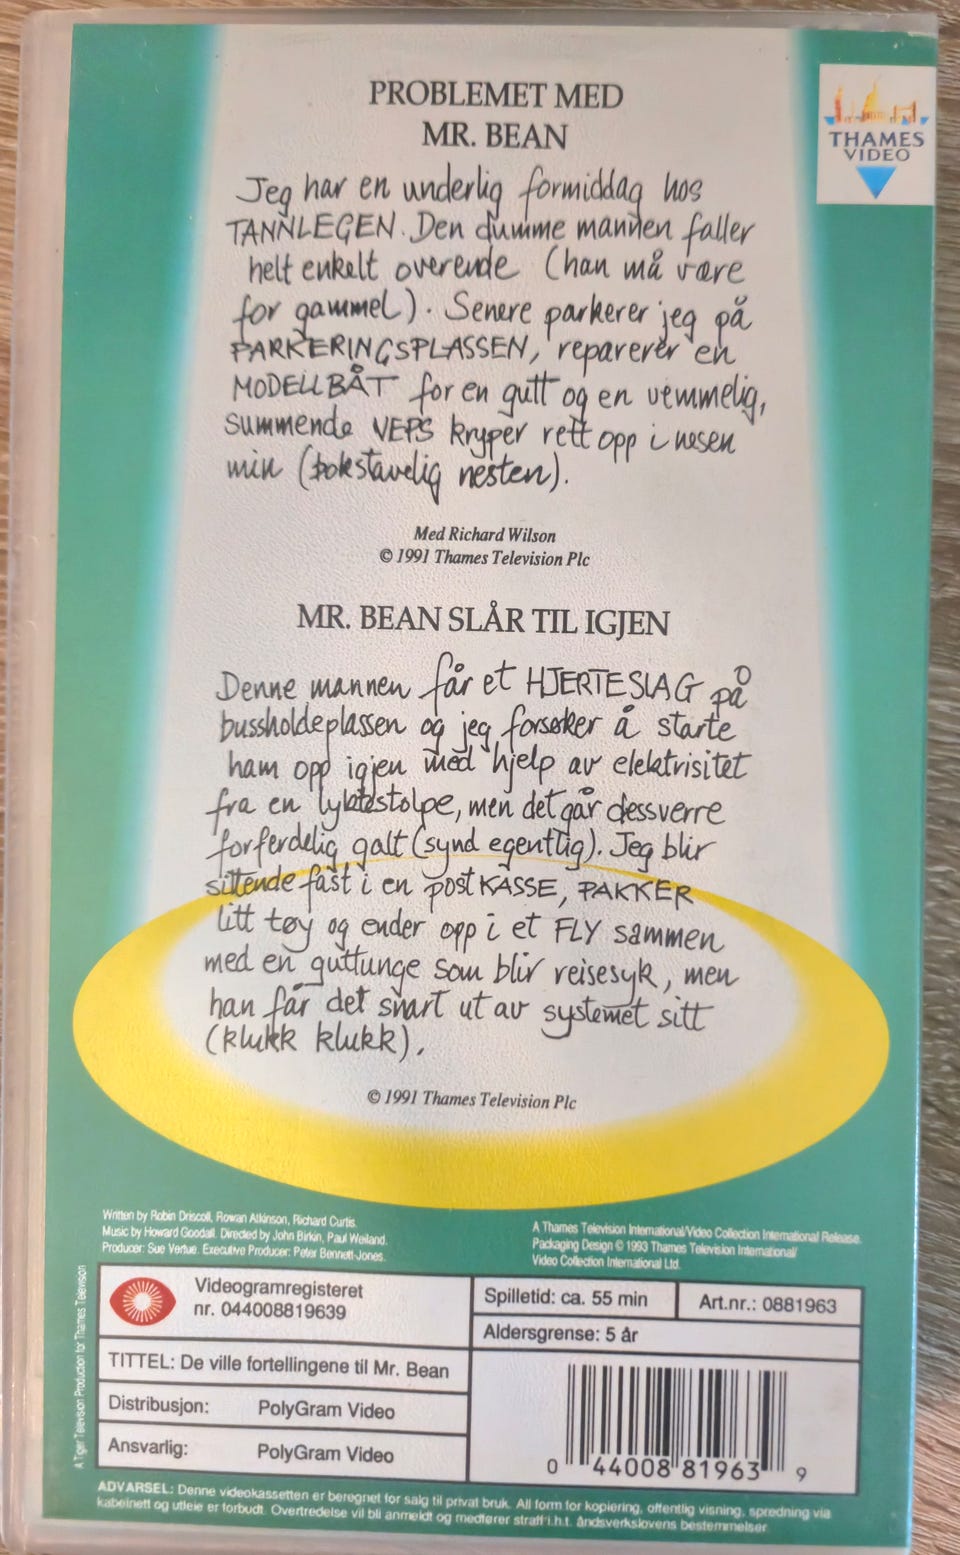 THAMES
VIDEO
PROBLEMET MED
MR. BEAN
Jeg har en underlig formiddag hos
TANNLEGEN. Den dumme mannen faller
helt enkelt overende (han må være
for gammel). Senere parkerer jeg på
PARKERINGSPLASSEN, reparerer en
MODELLBÅT for en gutt og en vemmelig,
summende VEPS kryper rett opp i nesen
min (bokstavelig nesten).
Med Richard Wilson
© 1991 Thames Television Plc
MR. BEAN SLÅR TIL IGJEN
Denne mannen får et HJERTESLAG på
bussholdeplassen og jeg forsøker å starte
ham opp igjen med hjelp av elektrisitet
fra en lyktestolpe, men det går dessverre
forferdelig galt (synd egentlig). Jeg blir
sittende fast i en postKASSE, PAKKER
litt tøy og ender opp i et FLY sammen
med en guttunge som blir reisesyk, men
han får det snart ut av systemet sitt
(klukk klukk).
© 1991 Thames Television Plc
Written by Robin Driscoll, Rowan Atkinson, Richard Curtis.
Music by Howard Goodall. Directed by John Birkin, Paul Weiland.
Producer: Sue Vertue. Executive Producer: Peter Bennett-Jones.
A Thames Television International/Video Collection International Release.
Packaging Design © 1993 Thames Television International/
Video Collection International Ltd.
A Tiger Television Production for Thames Television
Videogramregisteret
nr. 044008819639
Spilletid: ca. 55 min
Art.nr.: 0881963
Aldersgrense: 5 år
TITTEL: De ville fortellingene til Mr. Bean
Distribusjon: PolyGram Video
Ansvarlig: PolyGram Video
0 44008 81963 9
ADVARSEL: Denne videokassetten er beregnet for salg til privat bruk. All form for kopiering, offentlig visning, spredning via
kabelnett og utleie er forbudt. Overtredelse vil bli anmeldt og medfører straff i.h.t. åndsverkslovens bestemmelser